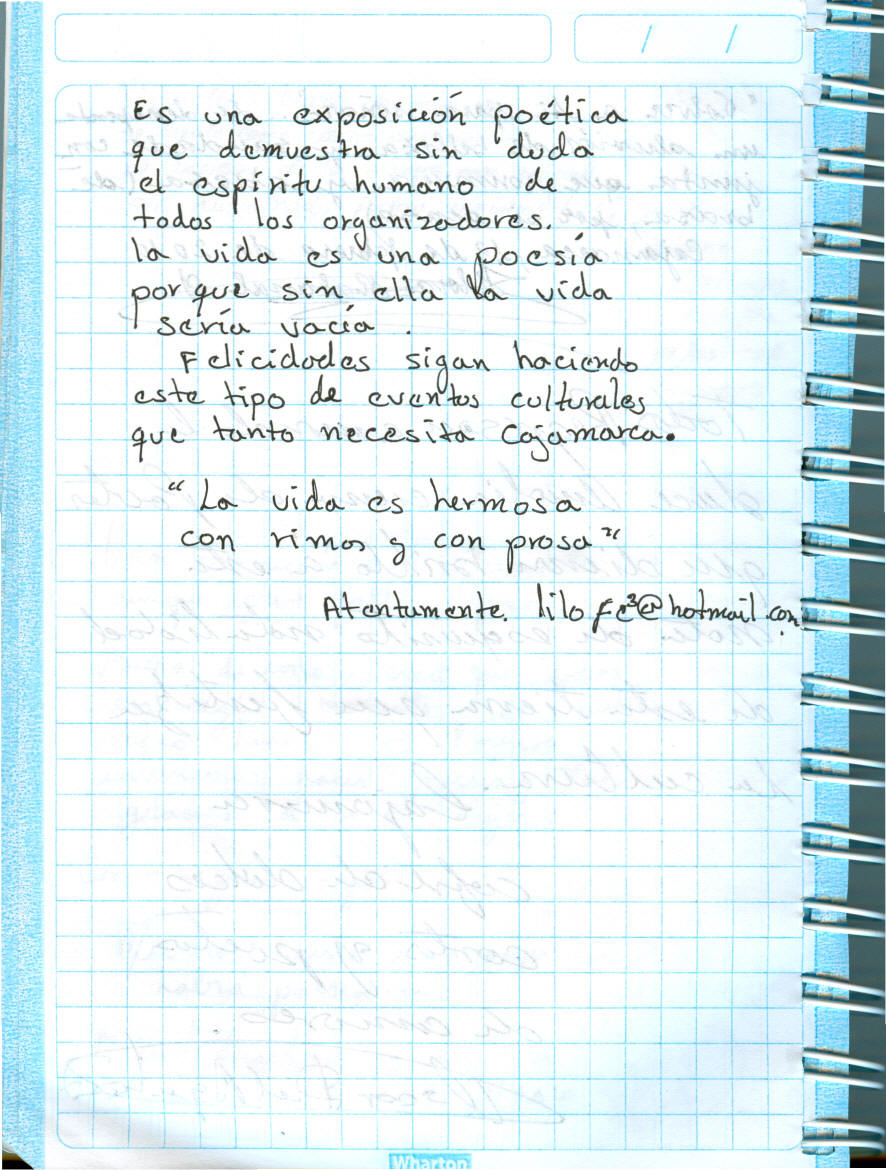 Es una exposición poética
que demuestra sin duda
el espíritu humano de
todos los organizadores.
la vida es una poesía
porque sin ella la vida
sería vacía.
Felicidades sigan haciendo
este tipo de eventos culturales
que tanto necesita Cajamarca.
"La vida es hermosa
con rimas y con prosa"
Atentamente. lilofe³@hotmail.com
Wharton